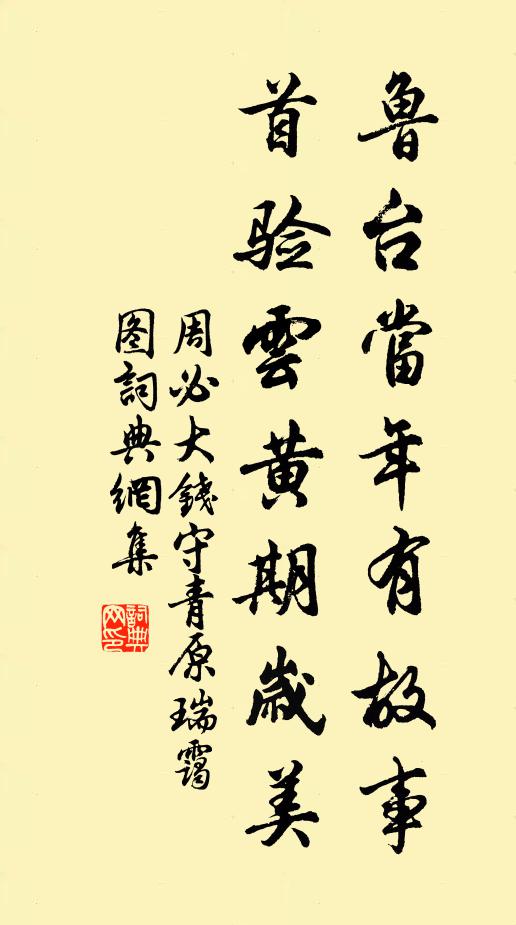 鲁台當年有故事
首验雲黄期歲美
周必大錢守青原瑞靄
图詞典網集
詞典网印